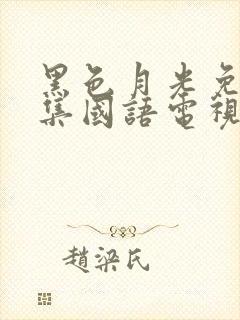 黑色月光免
集國語電視
趙梁氏